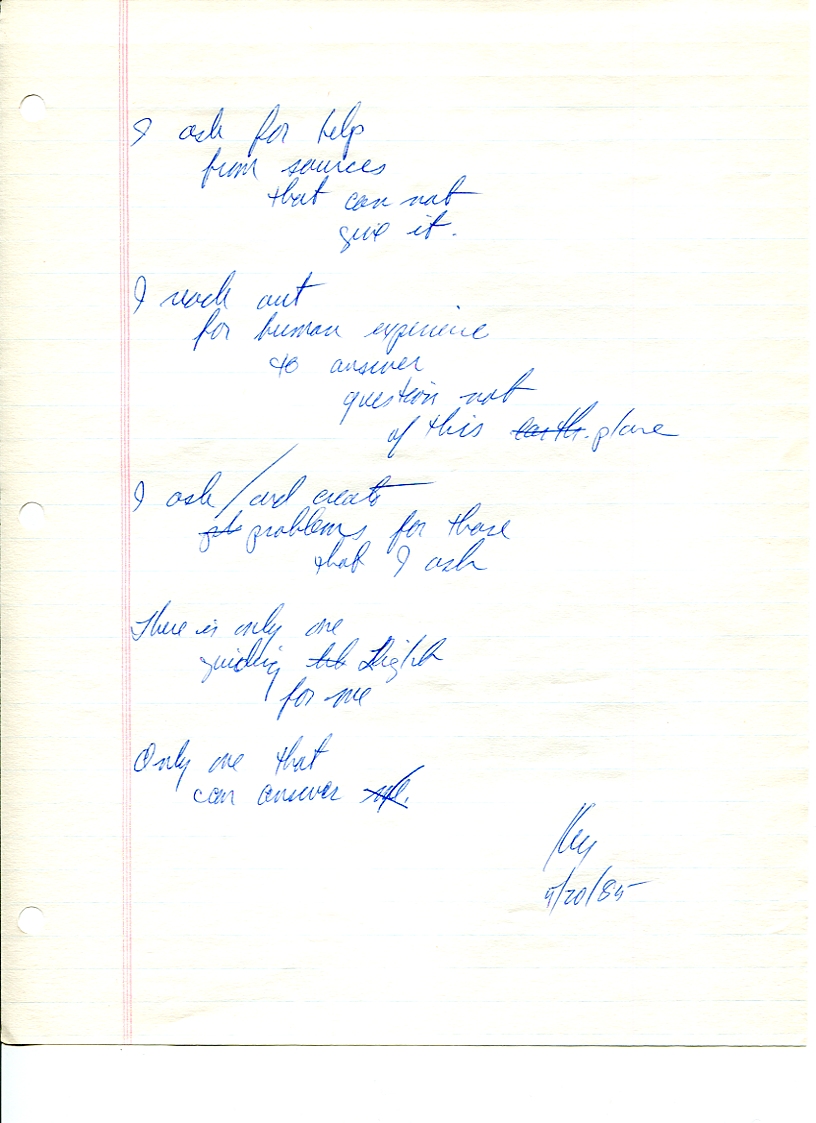 I ask for help
from sources
that can not
give it.
I reach out
for human experience
to answer
question not
of this earth. plane
I ask / and create
problems for those
that I ask
There is only one
guiding Light
for me
Only one that
can answer me.